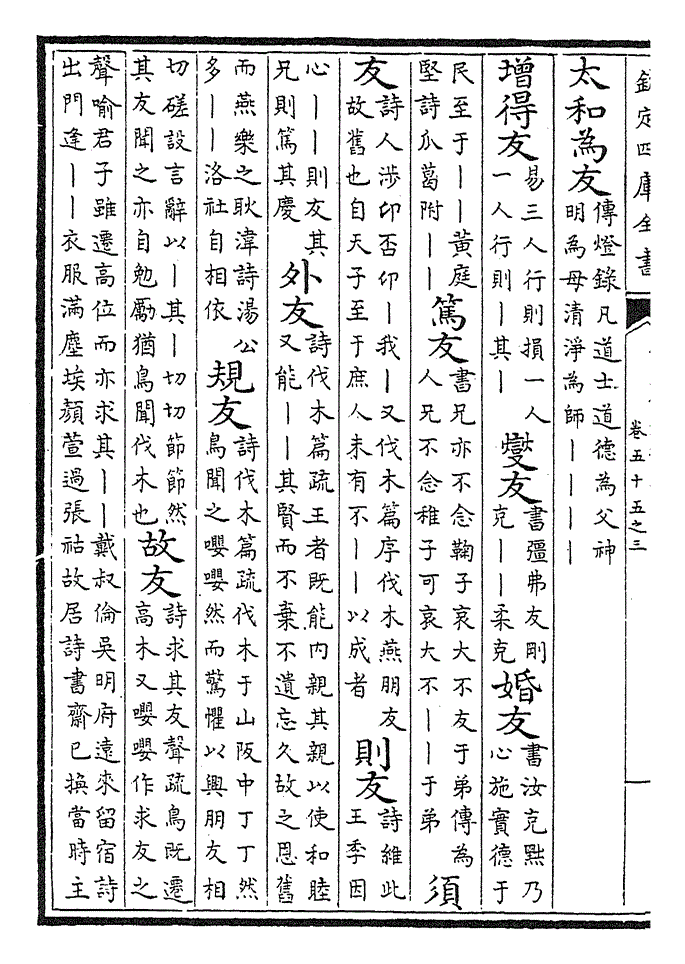 欽定四庫全書
卷五十五之三
太和為友
傳燈錄凡道士道德為父神
明為母清淨為師丨丨丨丨
增得友
易三人行則損一人
一人行則丨其丨
燮友
書彊弗友剛
克丨丨柔克
婚友
書汝克黜乃
心施實德于
民至于丨丨黃庭
堅詩瓜葛附丨丨
篤友
書兄亦不念鞠子哀大不友于弟傳為
人兄不念稚子可哀大不丨丨于弟
須
友
詩人涉卬否卬丨我丨又伐木篇序伐木燕朋友
故舊也自天子至于庶人未有不丨丨以成者
則友
詩維此
王季因
心丨丨則友其
兄則篤其慶
外友
詩伐木篇疏王者既能內親其親以使和睦
又能丨丨其賢而不棄不遺忘久故之恩舊
而燕樂之耿湋詩湯公
多丨丨洛社自相依
規友
詩伐木篇疏伐木于山阪中丁丁然
鳥聞之嚶嚶然而驚懼以興朋友相
切磋設言辭以丨其丨切切節節然
其友聞之亦自勉勵猶鳥聞伐木也
故友
詩求其友聲疏鳥既遷
高木又嚶嚶作求友之
聲喻君子雖遷高位而亦求其丨丨戴叔倫吳明府遠來留宿詩
出門逢丨丨衣服滿塵埃顔萱過張祜故居詩書齋已換當時主